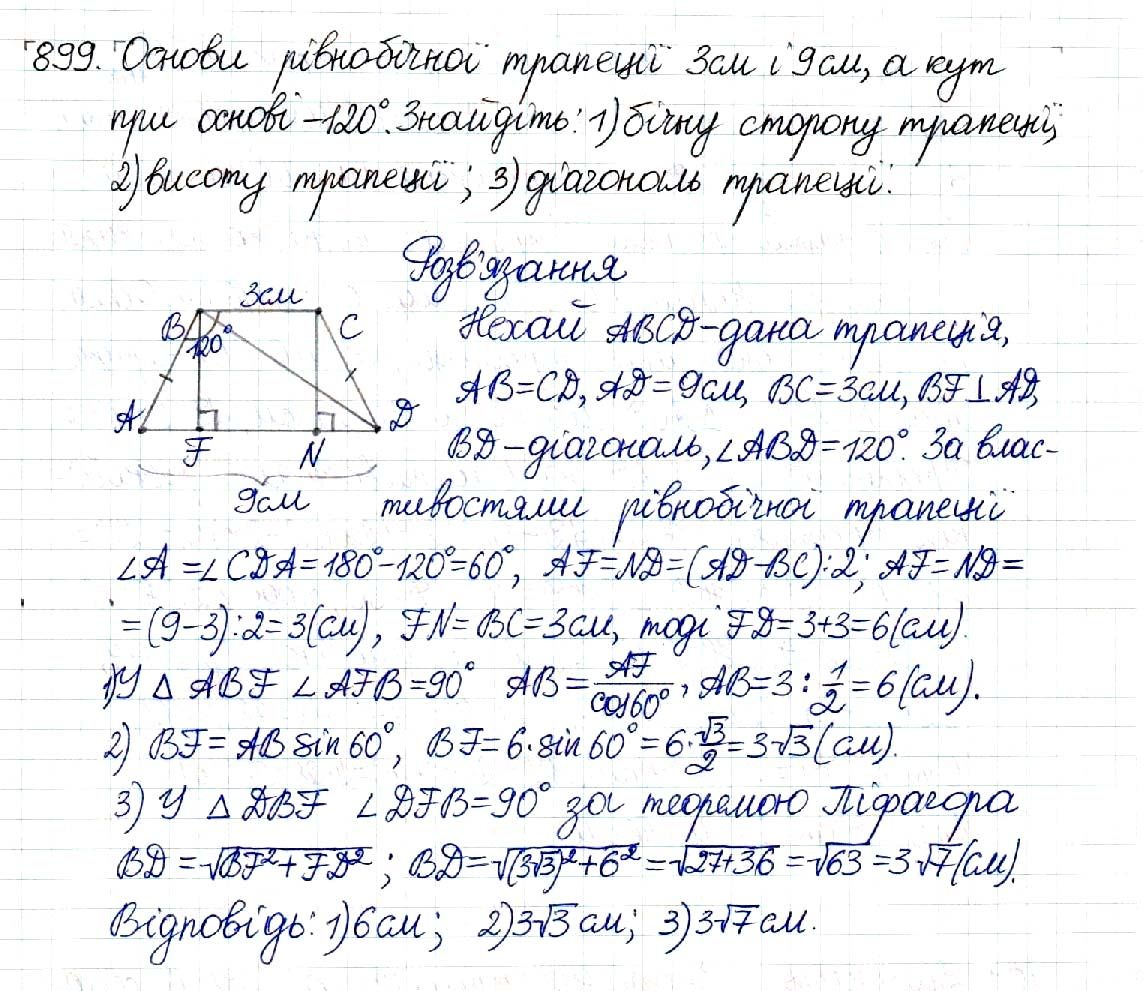 899. Основи рівнобічної трапеції 3см і 9см, а кут
при основі – 120°. Знайдіть: 1) бічну сторону трапеції;
2) висоту трапеції; 3) діагональ трапеції.
Розв'язання
3см
B
120°
C
A
F
N
D
9см
Нехай ABCD – дана трапеція,
AB = CD, AD = 9см, BC = 3см, BF ⊥ AD,
BD – діагональ, ∠ABD = 120°. За влас-
тивостями рівнобічної трапеції
∠A = ∠CDA = 180° – 120° = 60°, AF = ND = (AD – BC) : 2; AF = ND =
= (9 – 3) : 2 = 3 (см), FN = BC = 3см, тоді FD = 3 + 3 = 6 (см).
1) У △ ABF ∠ AFB = 90° AB = AF/cos60°, AB = 3 : 1/2 = 6 (см).
2) BF = AB sin 60°, BF = 6 · sin 60° = 6 · √3/2 = 3√3 (см).
3) У △ DBF ∠ DFB = 90° за теоремою Піфагора
BD = √(BF² + FD²); BD = √((3√3)² + 6²) = √(27 + 36) = √63 = 3√7 (см).
Відповідь: 1) 6 см; 2) 3√3 см; 3) 3√7 см.